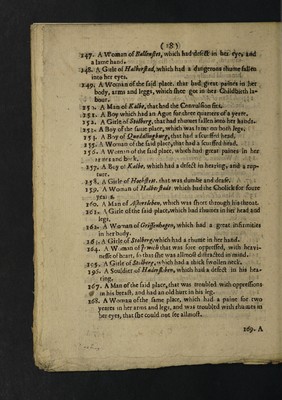 (18)
247. A Woman of Ballenstet, which had defect in her eye, and
a lame hand.
248. A Girle of Halberstad, which had a dangerous rhume fallen
into her eyes.
249. A Woman of the said place, that had great paines in her
body, arms and leggs, which shee got in her Childbirth la-
bour.
250. A Man of Kalbe, that had the Convulsion fits.
251. A Boy which had an Ague for three quarters of a yeere.
252. A Girle of Stolberg, that had rhumes fallen into her hands.
253. A Boy of the same place, which was lame on both legs.
254. A Boy of Quedlingburg, that had a scurffed head.
155. A Woman of the said place, that had a scurffed hand.
256. A Woman of the said place, which had great paines in her
armes and back.
257. A Boy of Kalbe, which had a defect in hearing, and a rup-
ture.
258. A Girle of Hackstet, that was dumbe and deafe.
259. A Woman of Halberstadt which had the Chollick for foure
yeares.
260. A Man of Ashersleben, which was short through his throat.
261. A Girle of the said place, which had rhumes in her head and
legs.
262. A Woman of Grissenhagen, which had a great infirmities
in her body.
263. A Girle of Stolberg, which had a rhume in her hand.
264. A Woman of that was sore oppressed, with heavi-
nesse of heart, so that she was allmost distracted in mind.
265. A Girle of Stolberg, which had a thick swollen neck.
296. A Souldier of which had a defect in his hea-
ring.
267. A Man of the said place, that was troubled with oppressions
in his breast, and had an old hurt in his leg.
268. A Woman of the same place, which had a paine for two
yeares in her arms and legs, and was troubled with rhumes in
her eyes, that she could not see allmost.
269. A